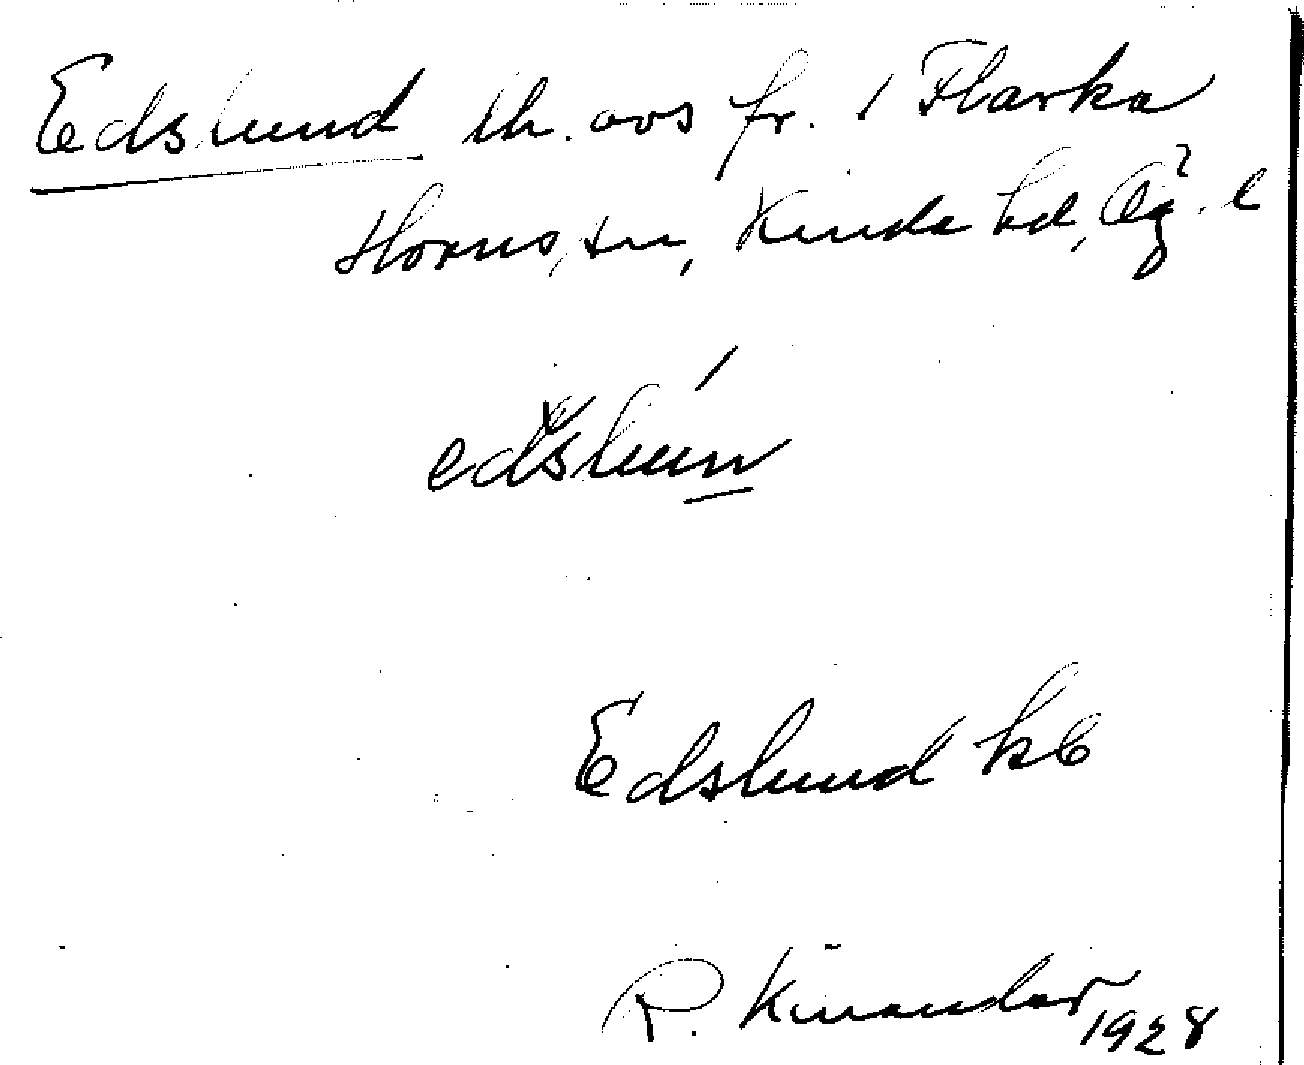 Edslund lh. avs fr. 1 Flarka
Horns, sn, Kinda hd, Ög. l
edslun
Edslund kb
R. Kinander 1928